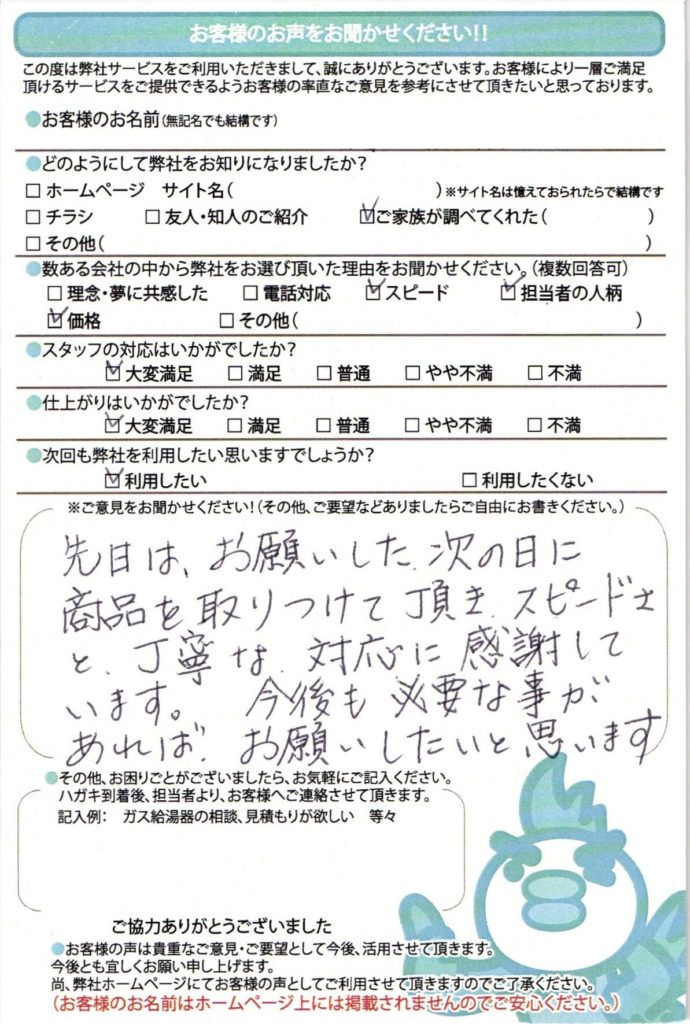 お客様のお声をお聞かせください!!
この度は弊社サービスをご利用いただきまして、誠にありがとうございます。お客様により一層ご満足
頂けるサービスをご提供できるようお客様の率直なご意見を参考にさせて頂きたいと思っております。
●お客様のお名前(無記名でも結構です)
●どのようにして弊社をお知りになりましたか?
□ ホームページ サイト名( )※サイト名は憶えておられたらで結構です
□ チラシ □ 友人・知人のご紹介 ☑ご家族が調べてくれた( )
□ その他( )
●数ある会社の中から弊社をお選び頂いた理由をお聞かせください。(複数回答可)
□ 理念・夢に共感した □ 電話対応 ☑ スピード ☑ 担当者の人柄
☑ 価格 □ その他( )
●スタッフの対応はいかがでしたか?
☑ 大変満足 □ 満足 □ 普通 □ やや不満 □ 不満
●仕上がりはいかがでしたか?
☑ 大変満足 □ 満足 □ 普通 □ やや不満 □ 不満
●次回も弊社を利用したい思いますでしょうか?
☑ 利用したい □ 利用したくない
※ご意見をお聞かせください!(その他、ご要望などありましたらご自由にお書きください。)
先日は、お願いした、次の日に
商品を取りつけて頂き、スピードさ
と、丁寧な、対応に感謝して
います。 今後も必要な事が
あれば、お願いしたいと思います
●その他、お困りごとがございましたら、お気軽にご記入ください。
ハガキ到着後、担当者より、お客様へご連絡させて頂きます。
記入例: ガス給湯器の相談、見積もりが欲しい 等々
ご協力ありがとうございました
●お客様の声は貴重なご意見・ご要望として今後、活用させて頂きます。
今後とも宜しくお願い申し上げます。
尚、弊社ホームページにてお客様の声としてご利用させて頂きますのでご了承ください。
(お客様のお名前はホームページ上には掲載されませんのでご安心ください。)